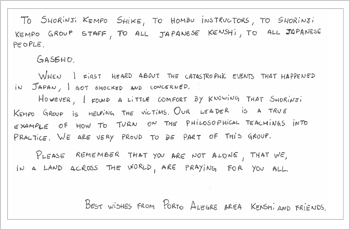 To Shorinji Kempo Shike, to Hombu instructors, to Shorinji
Kempo Group staff, to all Japanese Kenshi, to all Japanese
people.
Gassho.
When I first heard about the catastrophic events that happened
in Japan, I got shocked and concerned.
However, I found a little comfort by knowing that Shorinji
Kempo Group is helping the victims. Our leader is a true
example of how to turn on the philosophical teachings into
practice. We are very proud to be part of this group.
Please remember that you are not alone, that we,
in a land across the world, are praying for you all.
Best wishes from Porto Alegre area Kenshi and friends.